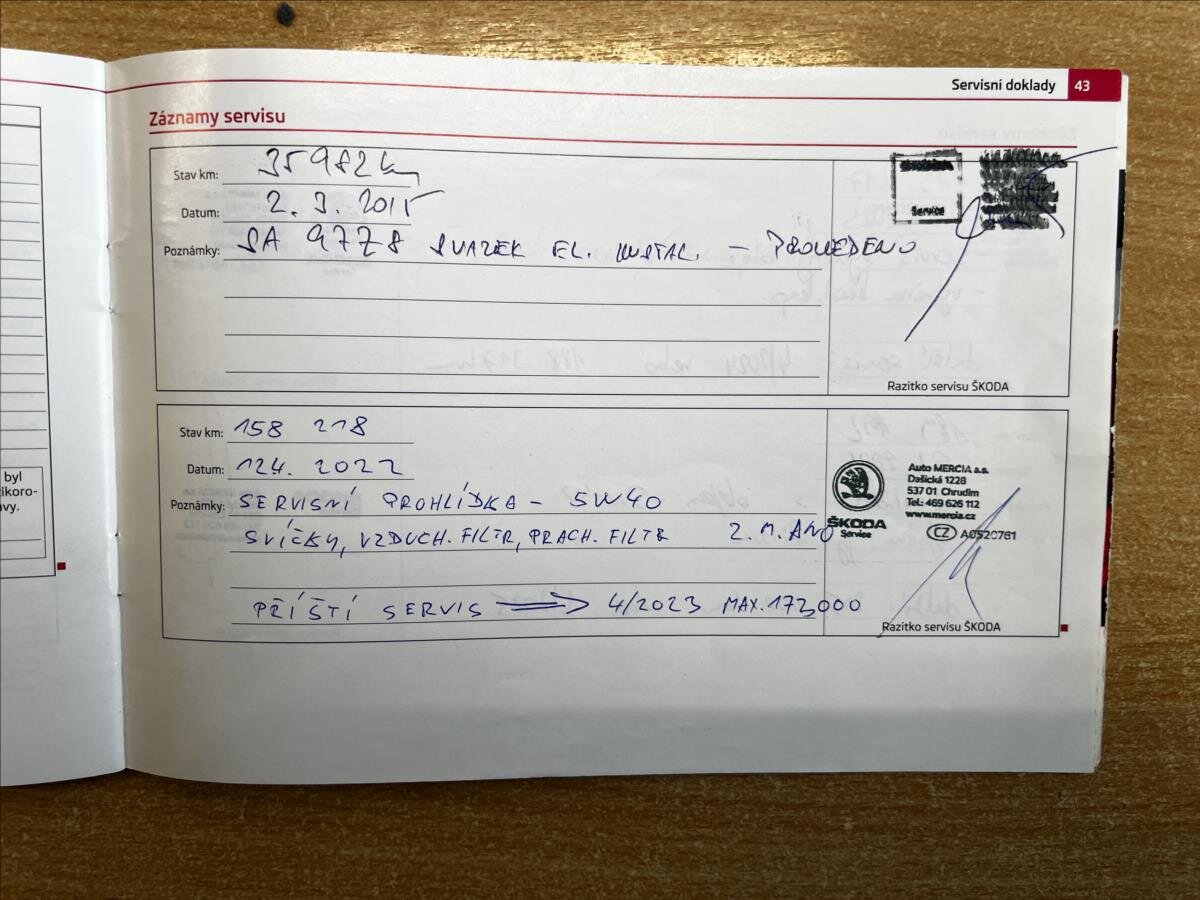 Servisní doklady 43
Záznamy servisu
Stav km: 35 982 km
Datum: 2. 3. 2015
Poznámky: SA 97Z8 SVAZEK EL. INSTAL. – PROVEDENO
Service
Razítko servisu ŠKODA
Stav km: 158 218
Datum: 124. 2022
Poznámky: SERVISNÍ PROHLÍDKA – 5W40
SVÍČKY, VZDUCH. FILTR, PRACH. FILTR 2. M. ANO
PŘÍŠTÍ SERVIS ⟹ 4/2023 MAX. 173,000
ŠKODA
Service
Auto MERCIA a.s.
Dašická 1228
537 01 Chrudim
Tel.: 469 626 112
www.mercia.cz
CZ A0520761
Razítko servisu ŠKODA
byl
tikoro-
avy.